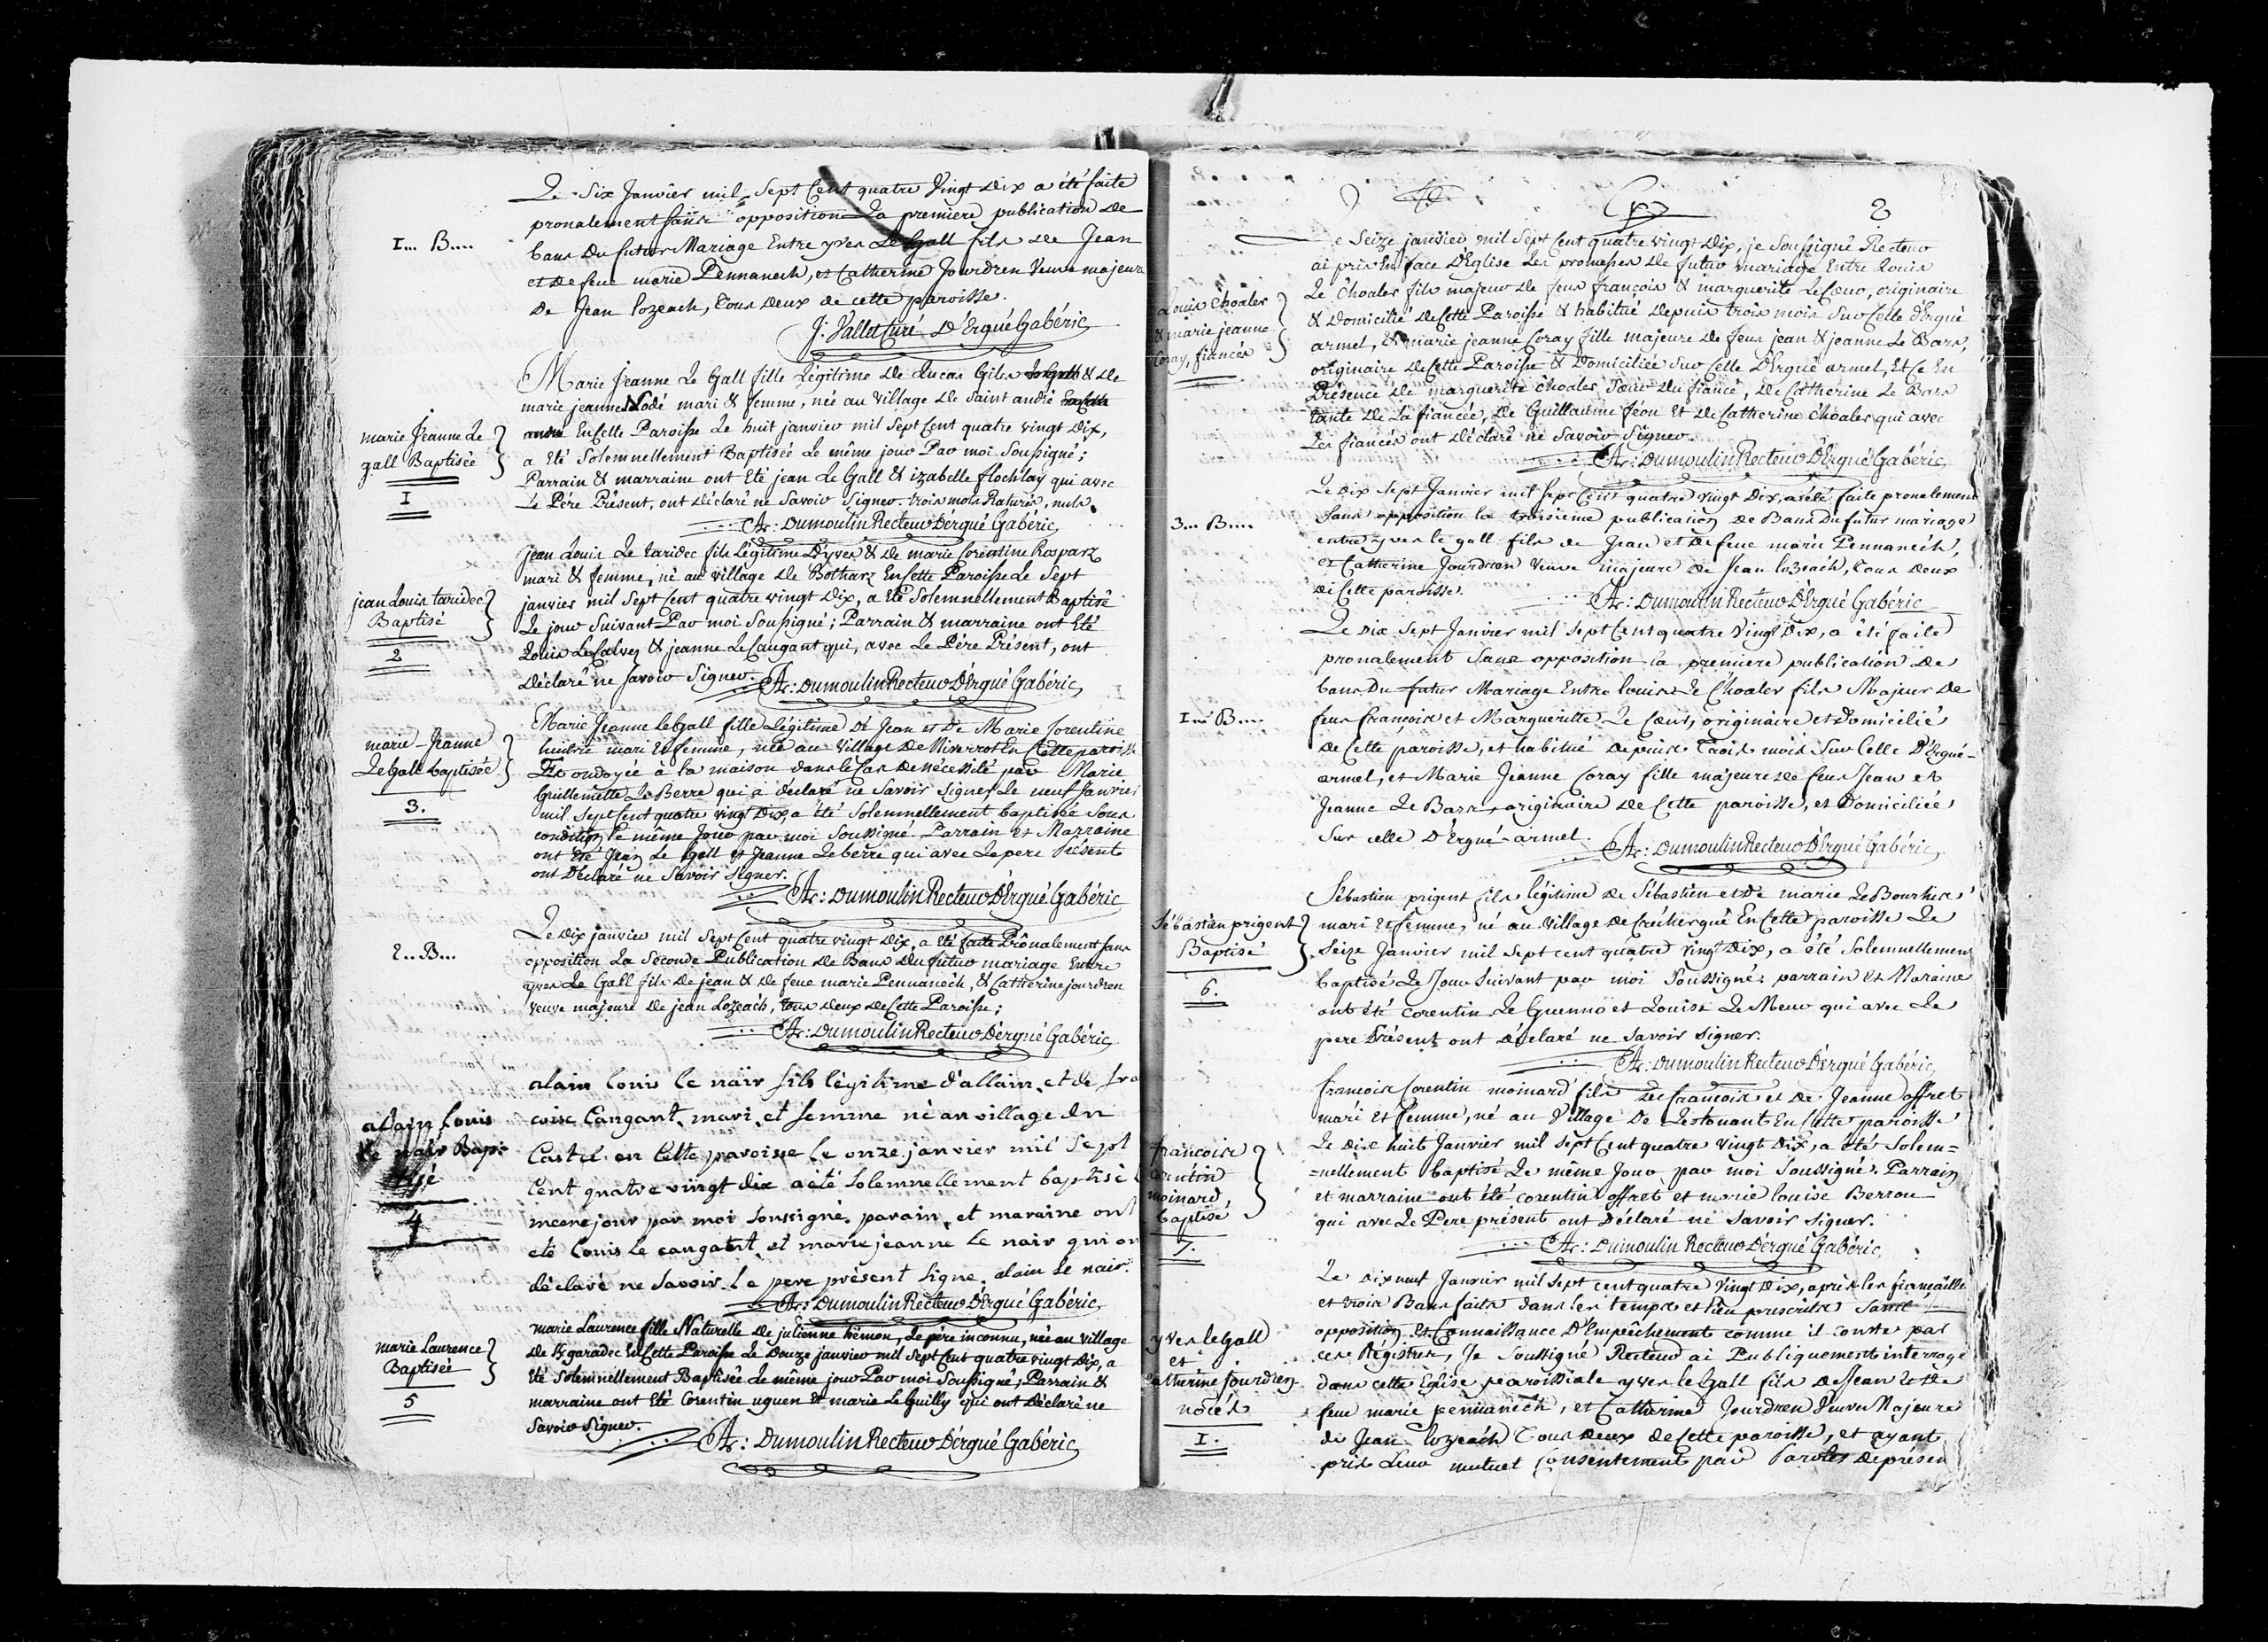 Le Six Janvier mil Sept Cent quatre Vingt Dix a été faite
pronalement sans opposition La premiere publication de
bans du futur Mariage Entre yves Le Gall fils de Jean
I... B....
et de feue marie Pennanech, et Catherine Jourdren Veuve majeure
De Jean lozeach, tous deux de cette paroisse.
J: Vallet Curé D'Ergué Gabéric
Marie Jeanne Le Gall fille Légitime de Lucas Giles & de
marie jeanne Lodé mari & femme, née au village de Saint andré
En Cette Paroisse Le huit janvier mil Sept Cent quatre vingt Dix,
marie Jeanne Le
gall Baptisée
I
a Eté Solemnellement Baptisée Le même jour Par moi Soussigné;
Parrain & marraine ont Eté jean Le Gall & izabelle flochlay qui avec
Le Pére Présent, ont déclaré ne Savoir Signer. trois mots Raturés, nuls.
Ar: Dumoulin Recteur D'érgué Gabéric
jean Louis Le taridec fils Légitime D'yves & de marie Corentine Rosparz
mari & femme, né au village de Botharz En Cette Paroisse Le Sept
jean Louis taridec
Baptisé
2
janvier mil Sept Cent quatre vingt Dix, a Eté Solemnellement Baptisé
Le jour Suivant Par moi Soussigné; Parrain & marraine ont Eté
Louis Le Calvez & jeanne Le Caugant qui, avec Le Pére Présent, ont
déclaré ne savoir Signer.
Ar: Dumoulin Recteur D'Ergué Gabéric
Marie Jeanne Le Gall fille Légitime de Jean et De Marie Corentine
mari et femme, née au Village De En Cette paroisse
marie-Jeanne
Le Gall baptisée
3.
Et ondoyée à la maison dans le Cas de nécessité par Marie
Guillemette Le Berre qui a déclaré ne Savoir Signer Le neuf Janvier
mil Sept Cent quatre vingt Dix, a été Solemnellement baptisé Sous
condition Le même Jour par moi Soussigné. Parrain et Marraine
ont Eté Jean Le Gall et Jeanne Le berre qui avec Le pere Présent
ont déclaré ne Savoir Signer.
Ar: Dumoulin Recteur D'Ergué Gabéric
Le Dix janvier mil Sept Cent quatre vingt Dix, a Eté faite Prônalement sans
2.. B...
opposition La Seconde Publication de Bans du futur mariage Entre
yves Le Gall fils de jean & de feue marie Pennanéch, & Catherine jourdren
veuve majeure de jean Lozeach, tous deux de Cette Paroisse;
Ar: Dumoulin Recteur D'érgué Gabéric
alain louis le naïr fils légitime d'allain et de fra
coise Cangant, mari et femme né au village du
alain louis
le naïr Bap-
tisé
4
Castel en Cette paroisse le onze janvier mil Sept
Cent quatre vingt dix a été solemnellement baptisé
meme jour par moi soussigné. parain et maraine ont
eté louis le cangant et marie jeanne le nair qui on
déclaré ne savoir. le pere présent signe. alain le nair.
Ar: Dumoulin Recteur D'Ergué Gabéric
marie Laurence fille Naturelle de julienne hémon, Le pére inconnu, née au village
marie Laurence
Baptisée
5
de Kgaradec En Cette Paroisse Le Douze janvier mil Sept Cent quatre vingt Dix, a
Eté Solemnellement Baptisée Le même jour Par moi Soussigné; Parrain &
marraine ont Eté Corentin uguen Et marie Le Guilly qui ont déclaré ne
Savoir Signer.
Ar: Dumoulin Recteur D'érgué Gabéric
2
Le Seize janvier mil Sept Cent quatre vingt Dix, je Soussigné Recteur
ai pris En face D'Eglise Les promesses de futur mariage Entre Louis
Louis Choaler
& marie jeanne
Coray, fiancés
Le Choaler fils majeur de feus françois & marguerite Le Cœur, originaire
& Domicilié de Cette Paroisse & habitué depuis trois mois Sur Celle d'Ergué
armel, Et marie jeanne Coray fille majeure de feus jean & jeanne Le Bars,
originaire de Cette Paroisse & Domiciliée Sur Celle d'Ergué armel, Et Ce En
Présence de marguerite Choaler Sœur du fiancé, de Catherine Le Bars
tante de La fiancée, de Guillaume féon Et de Catherine Choaler qui avec
Les fiancés ont déclaré ne Savoir Signer.
Ar: Dumoulin Recteur D'Ergué Gabéric
Le Dix Sept Janvier mil Sept Cent quatre vingt Dix, a été faite pronalement
3... B....
Sans opposition la troisieme publication de Bans du futur mariage
entre yves le gall fils de Jean et De feue marie Pennanéch,
et Catherine Jourdren Veuve majeure de Jean lozeach, tous deux
de Cette paroisse.
Ar: Dumoulin Recteur D'Ergué Gabéric
Le Dix Sept Janvier mil Sept Cent quatre Vingt Dix, a été faite
pronalement Sans opposition la premiere publication de
bans du futur Mariage Entre louis Le Choaler fils Majeur de
I... B....
feus françois et Margueritte Le Cœur, originaire et Domicilié
de Cette paroisse, et habitué depuis Trois mois Sur Celle D'Ergué-
armel, et Marie Jeanne Coray fille majeure de feus Jean et
Jeanne Le Bars, originaire de Cette paroisse, et Domiciliée
Sur celle D'Ergué-armel.
Ar: Dumoulin Recteur D'Ergué Gabéric
Sébastien prigent fils légitime de Sébastien et De marie Le Bourhis
Sébastien prigent
Baptisé
6.
mari et femme, né au Village de Créhergué En Cette paroisse Le
Seize Janvier mil Sept cent quatre vingt Dix, a été Solemnellement
baptisé Le Jour Suivant par moi Soussigné; parrain et Maraine
ont été corentin Le Guenno et Louise Le Meur qui avec Le
pere Présent ont déclaré ne Savoir Signer.
Ar: Dumoulin Recteur D'érgué Gabéric
francois Corentin moinard fils de francois et De Jeanne offret
mari et femme, né au Village De Lestonant En Cette paroisse
francois
Corentin
moinard,
baptisé
7.
Le Dix huit Janvier mil Sept Cent quatre Vingt Dix, a été Solem=
=nellement baptisé Le même Jour par moi Soussigné. Parrain
et marraine ont été corentin offret et marie louise Berrou
qui avec Le Pere présent ont déclaré ne Savoir Signer.
Ar: Dumoulin Recteur D'érgué Gabéric
Le Dix neuf Janvier mil Sept cent quatre Vingt Dix, après les fiancaille
et trois Bans faits dans les temps et lieu prescrits Sans
yves le Gall
et
Catherine Jourdren
nocés
I.
opposition Et Connaissance D'Empêchement comme il conste par
ces Régistres, Je Soussigné Recteur ai Publiquement interrogé
dans cette Eglise paroissiale yves le Gall fils de Jean et De
feue marie pennanéch, et Catherine Jourdren Veuve Majeure
de Jean lozéach Tous Deux de Cette paroisse, et ayant
pris Leur mutuel Consentement par Paroles de présen